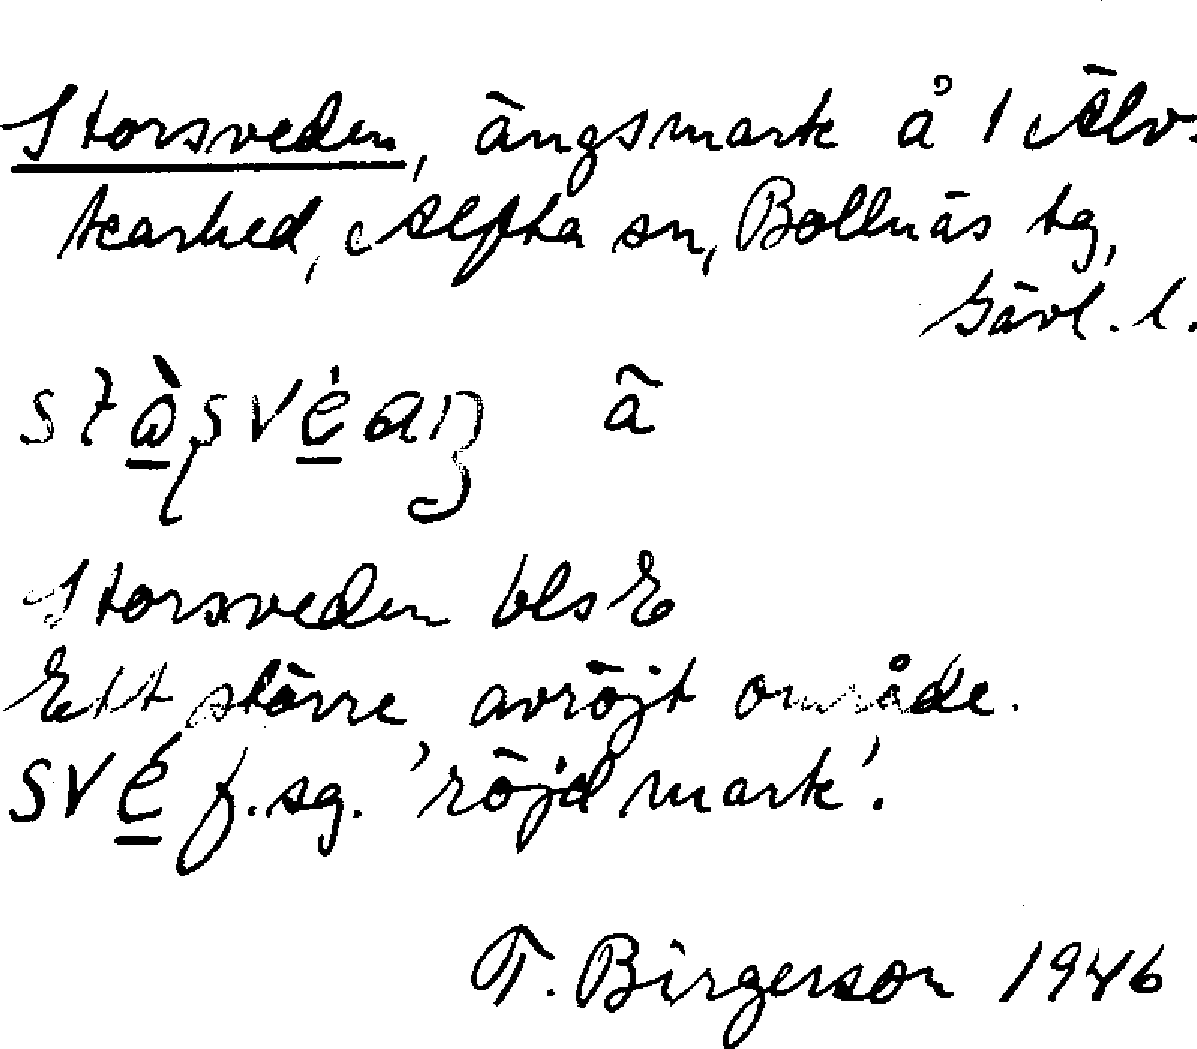 Storsveden, ängsmark å 1 Älv-
karhed, Alfta sn, Bollnäs tg,
Gävl. l.
å
Storsveden bls E
Ett större avröjt område.
své f. sg. 'röjd mark'.
T. Birgerson 1946